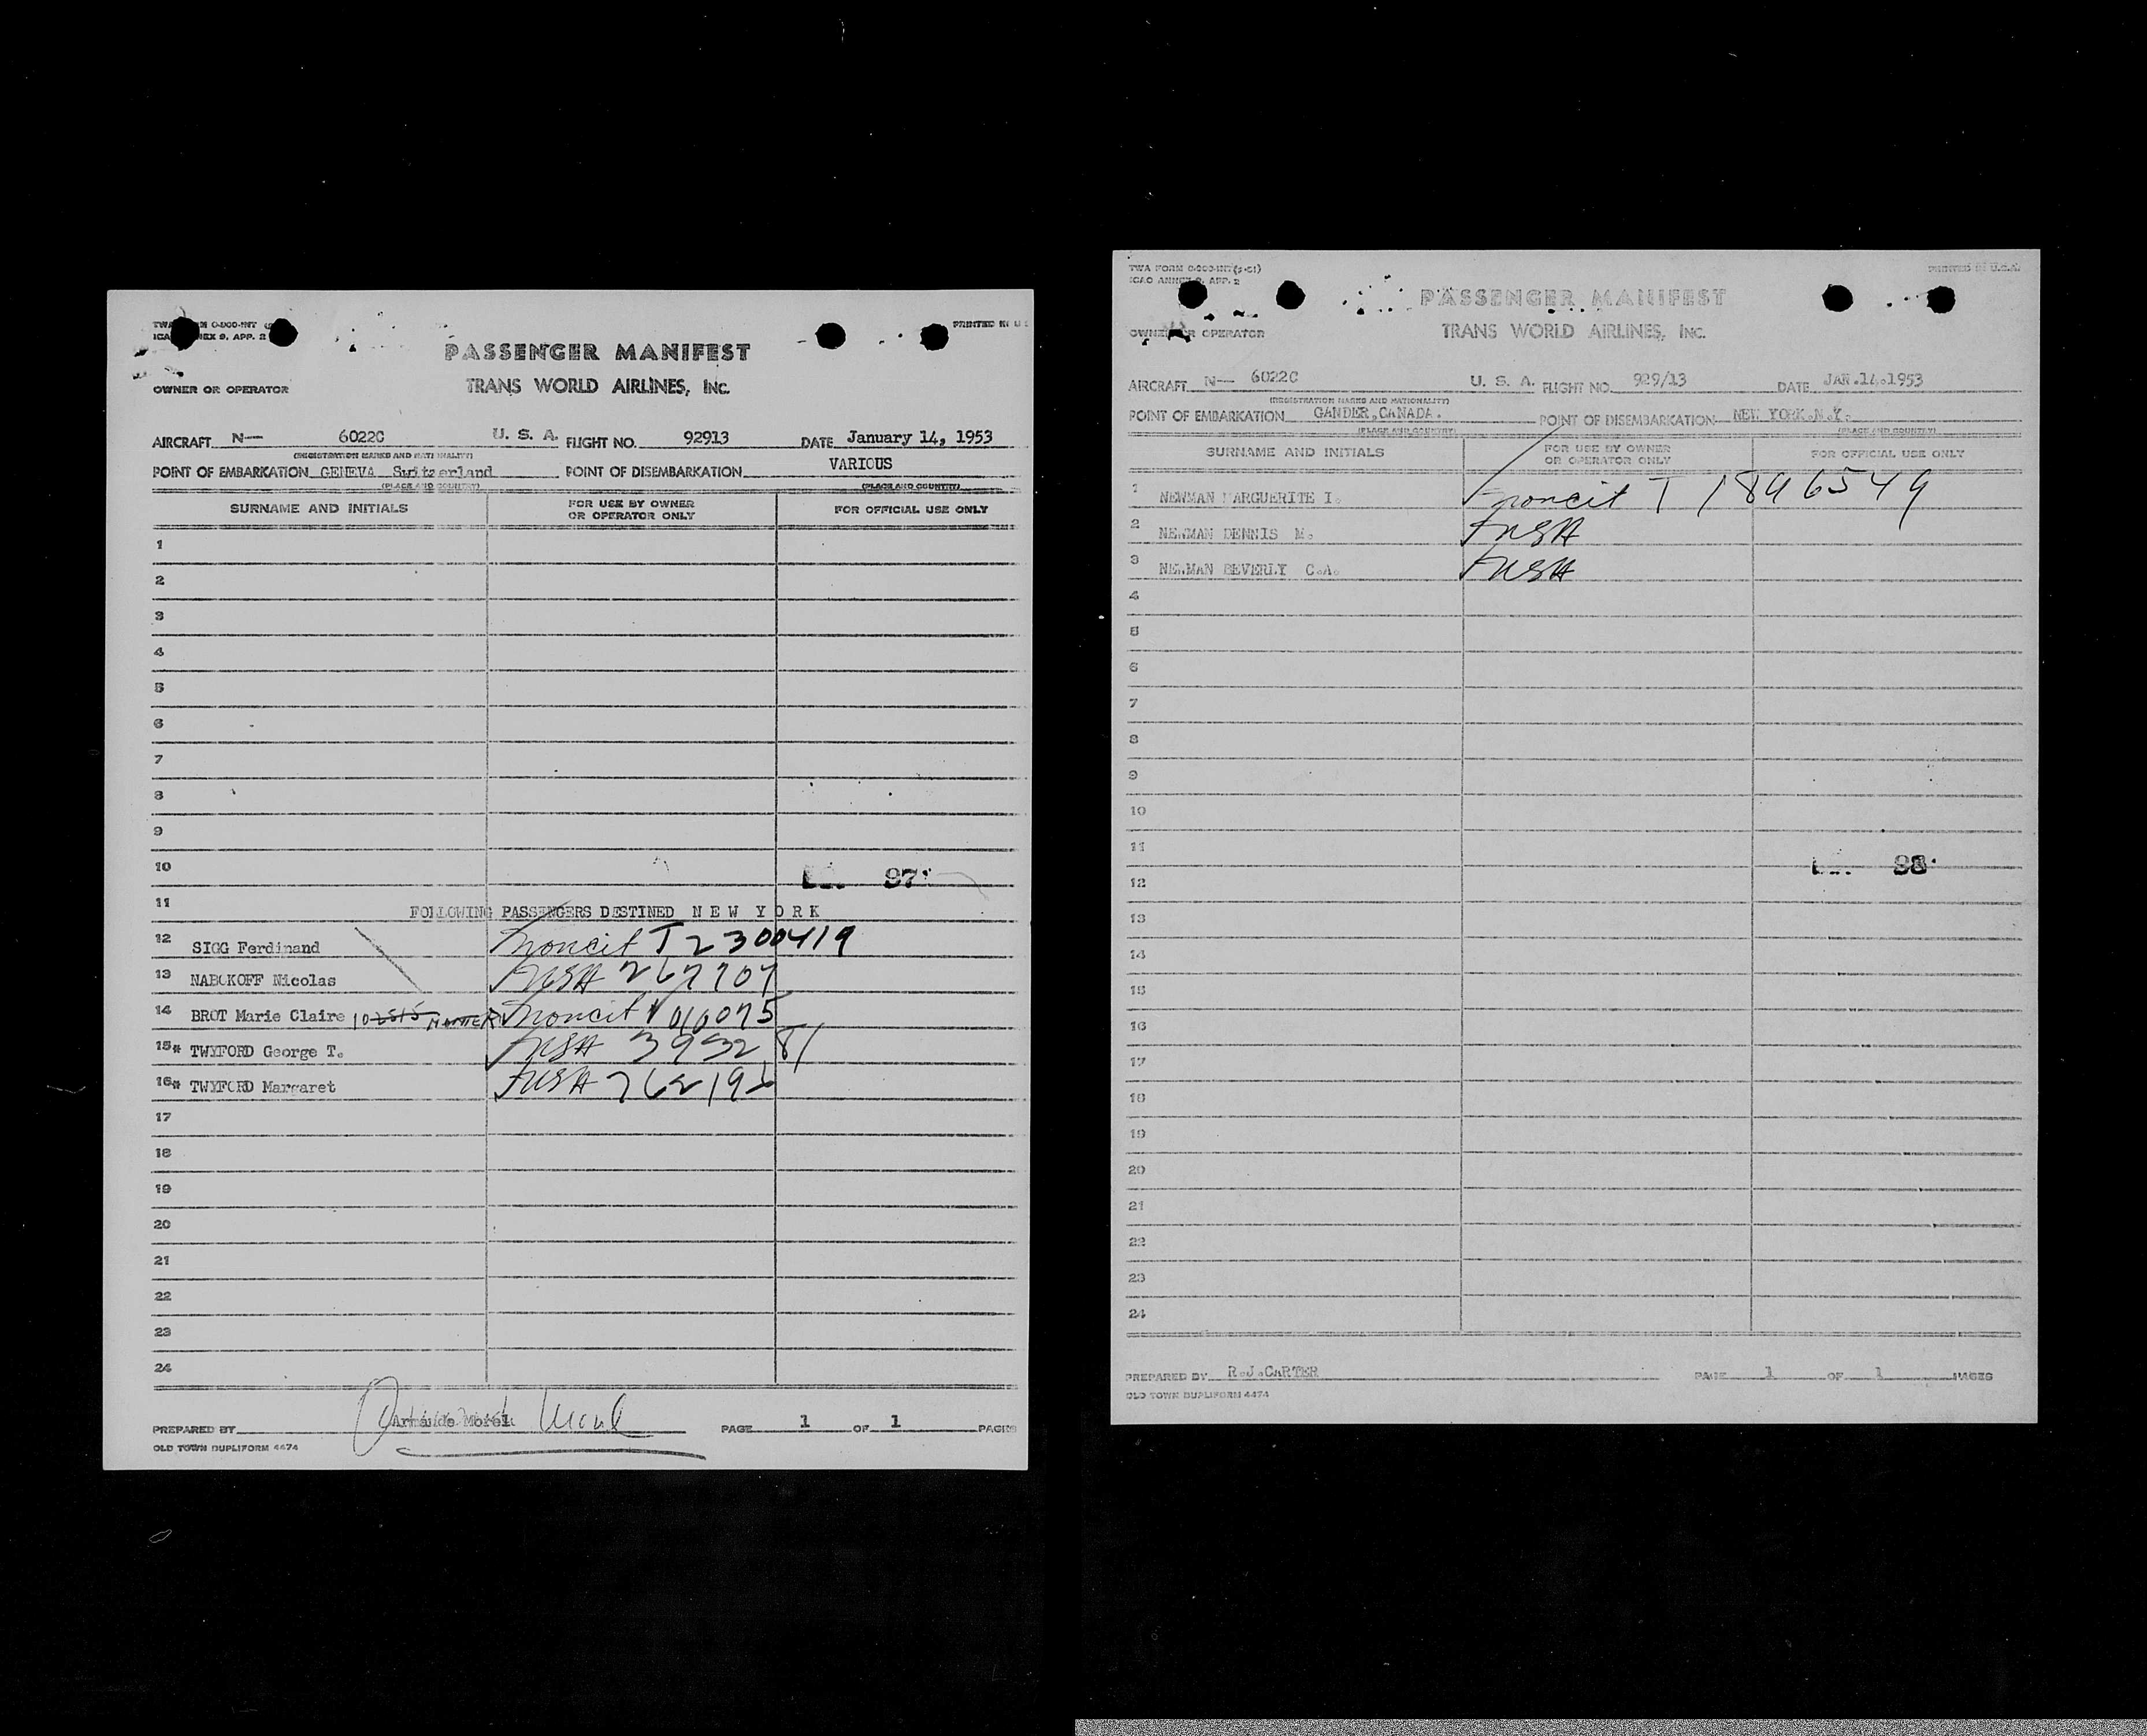 PRINTED IN U
PASSENGER MANIFEST
TRANS WORLD AIRLINES, INC.
OWNER OR OPERATOR
AIRCRAFT N— 6022C U. S. A. FLIGHT NO. 92913 DATE January 14, 1953
(REGISTRATION MARKS AND NATIONALITY)
POINT OF EMBARKATION GENEVA Switzerland POINT OF DISEMBARKATION VARIOUS
(PLACE AND COUNTRY) (PLACE AND COUNTRY)
SURNAME AND INITIALS FOR USE BY OWNER OR OPERATOR ONLY FOR OFFICIAL USE ONLY
1
2
3
4
5
6
7
8
9
10 97
11 FOLLOWING PASSENGERS DESTINED N E W Y O R K
12 SIGG Ferdinand noncit T 2300419
13 NABOKOFF Nicolas USA 267707
14 BROT Marie Claire noncit V 010075
15* TWYFORD George T. USA 395281
16* TWYFORD Margaret USA
17
18
19
20
21
22
23
24
PREPARED BY Armande Morel PAGE 1 OF 1 PAGES
OLD TOWN DUPLIFORM 4474
TWA FORM
ICAO ANNEX 9, APP. 2
PRINTED IN U.S.A.
PASSENGER MANIFEST
OWNER OR OPERATOR
TRANS WORLD AIRLINES, INC.
AIRCRAFT N— 6022C U. S. A. FLIGHT NO. 929/13 DATE JAN.14.1953
(REGISTRATION MARKS AND NATIONALITY)
POINT OF EMBARKATION GANDER,CANADA. POINT OF DISEMBARKATION NEW YORK.N.Y.
(PLACE AND COUNTRY) (PLACE AND COUNTRY)
SURNAME AND INITIALS FOR USE BY OWNER OR OPERATOR ONLY FOR OFFICIAL USE ONLY
1 NEWMAN MARGUERITE I. noncit T 1896549
2 NEWMAN DENNIS M. USA
3 NEWMAN BEVERLY C.A. USA
4
5
6
7
8
9
10
11
98
12
13
14
15
16
17
18
19
20
21
22
23
24
PREPARED BY R.J.CARTER PAGE 1 OF 1 PAGES
OLD TOWN DUPLIFORM 4474